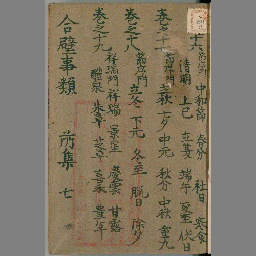 十六 節序門 中和節 春分 社日 寒食
清明 上巳 立夏 端午 夏至 伏日
卷之十七 節序門 立秋 七夕 中元 秋分 中秋 重九
卷之十八 節序門 立冬 下元 冬至 臘日 除夕
卷之十九 祥瑞門 祥瑞 景星 慶雲 甘露
醴泉 朱草 芝草 嘉禾 豐年
合璧事類 前集 七